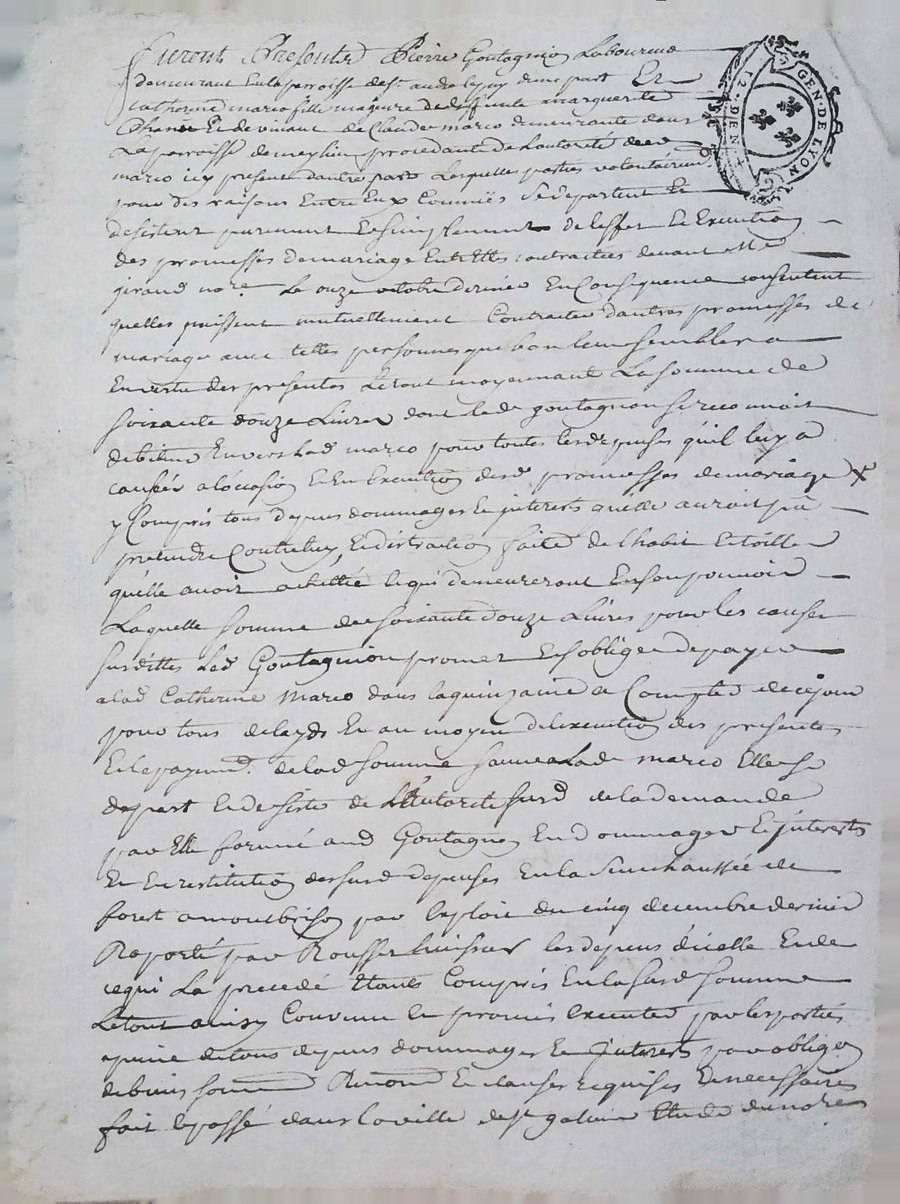 furent Presents Pierre Goutagnion Laboureur
demeurant En la parroisse de st andre le puy dune part Et
Catherine marco fille majeure de deffunte marguerite
et de vivant de Claude marco demeurante dans
La parroisse de meylieu procedante de Lautorité dud
marco icy present dautre part Lesquelles parties volontairement
pour des raisons Entre Eux Connües se departent Et
desistent purement Et simplement de leffet Et Execution
des promesses de mariage Entr Elles contractées devant Me
giraud nore Le onze octobre dernier En Consequence consentent
quelles puissent mutuellement Contracter dautres promesses de
mariage avec telles personnes que bon leur semblera
En vertu des presentes Le tout moyennant La somme de
soixante douze Livres dont led goutagnion se reconnoit
debiteur Envers lad marco pour toutes les depenses quil luy a
causées a locasion Et En Execution desd promesses de mariage X
y Compris tous depens dommages Et interets quelle auroit pû
pretendre Contre luy, Et distraction faite de lhabit Et toille
quelle avoit achettée Et qui demeureront En son pouvoir
Laquelle somme de soixante douze Livres pour les causes
susdittes Led Goutagnion promet Et soblige de payer
a lad Catherine Marco dans la quinzaine a Compter de ce jour
pour tous delays Et au moyen de lexecution des presentes
Et le payement de lad somme a lad marco Elle se
depart Et desiste de L'autorité susd de la demande
par Elle formé aud Goutagnon En dommages Et interets
Et En restitution des susd depenses En la Senechaussée de
forest a montbrison par Exploit du cinq decembre dernier
Raporté par Rousset huissier les depens dicelle Et de
ce qui La precedé Etants Compris En la susd somme
Le tout ainsy Convenu Et promis Executer par les parties
a peine de tous depens dommages Et Interets par obligon
de biens soumon Renond Et clauses requises Et necessaires
fait Et passé dans la ville de st galmier Etude du nore
GEN. DE LYON
12. DEN.